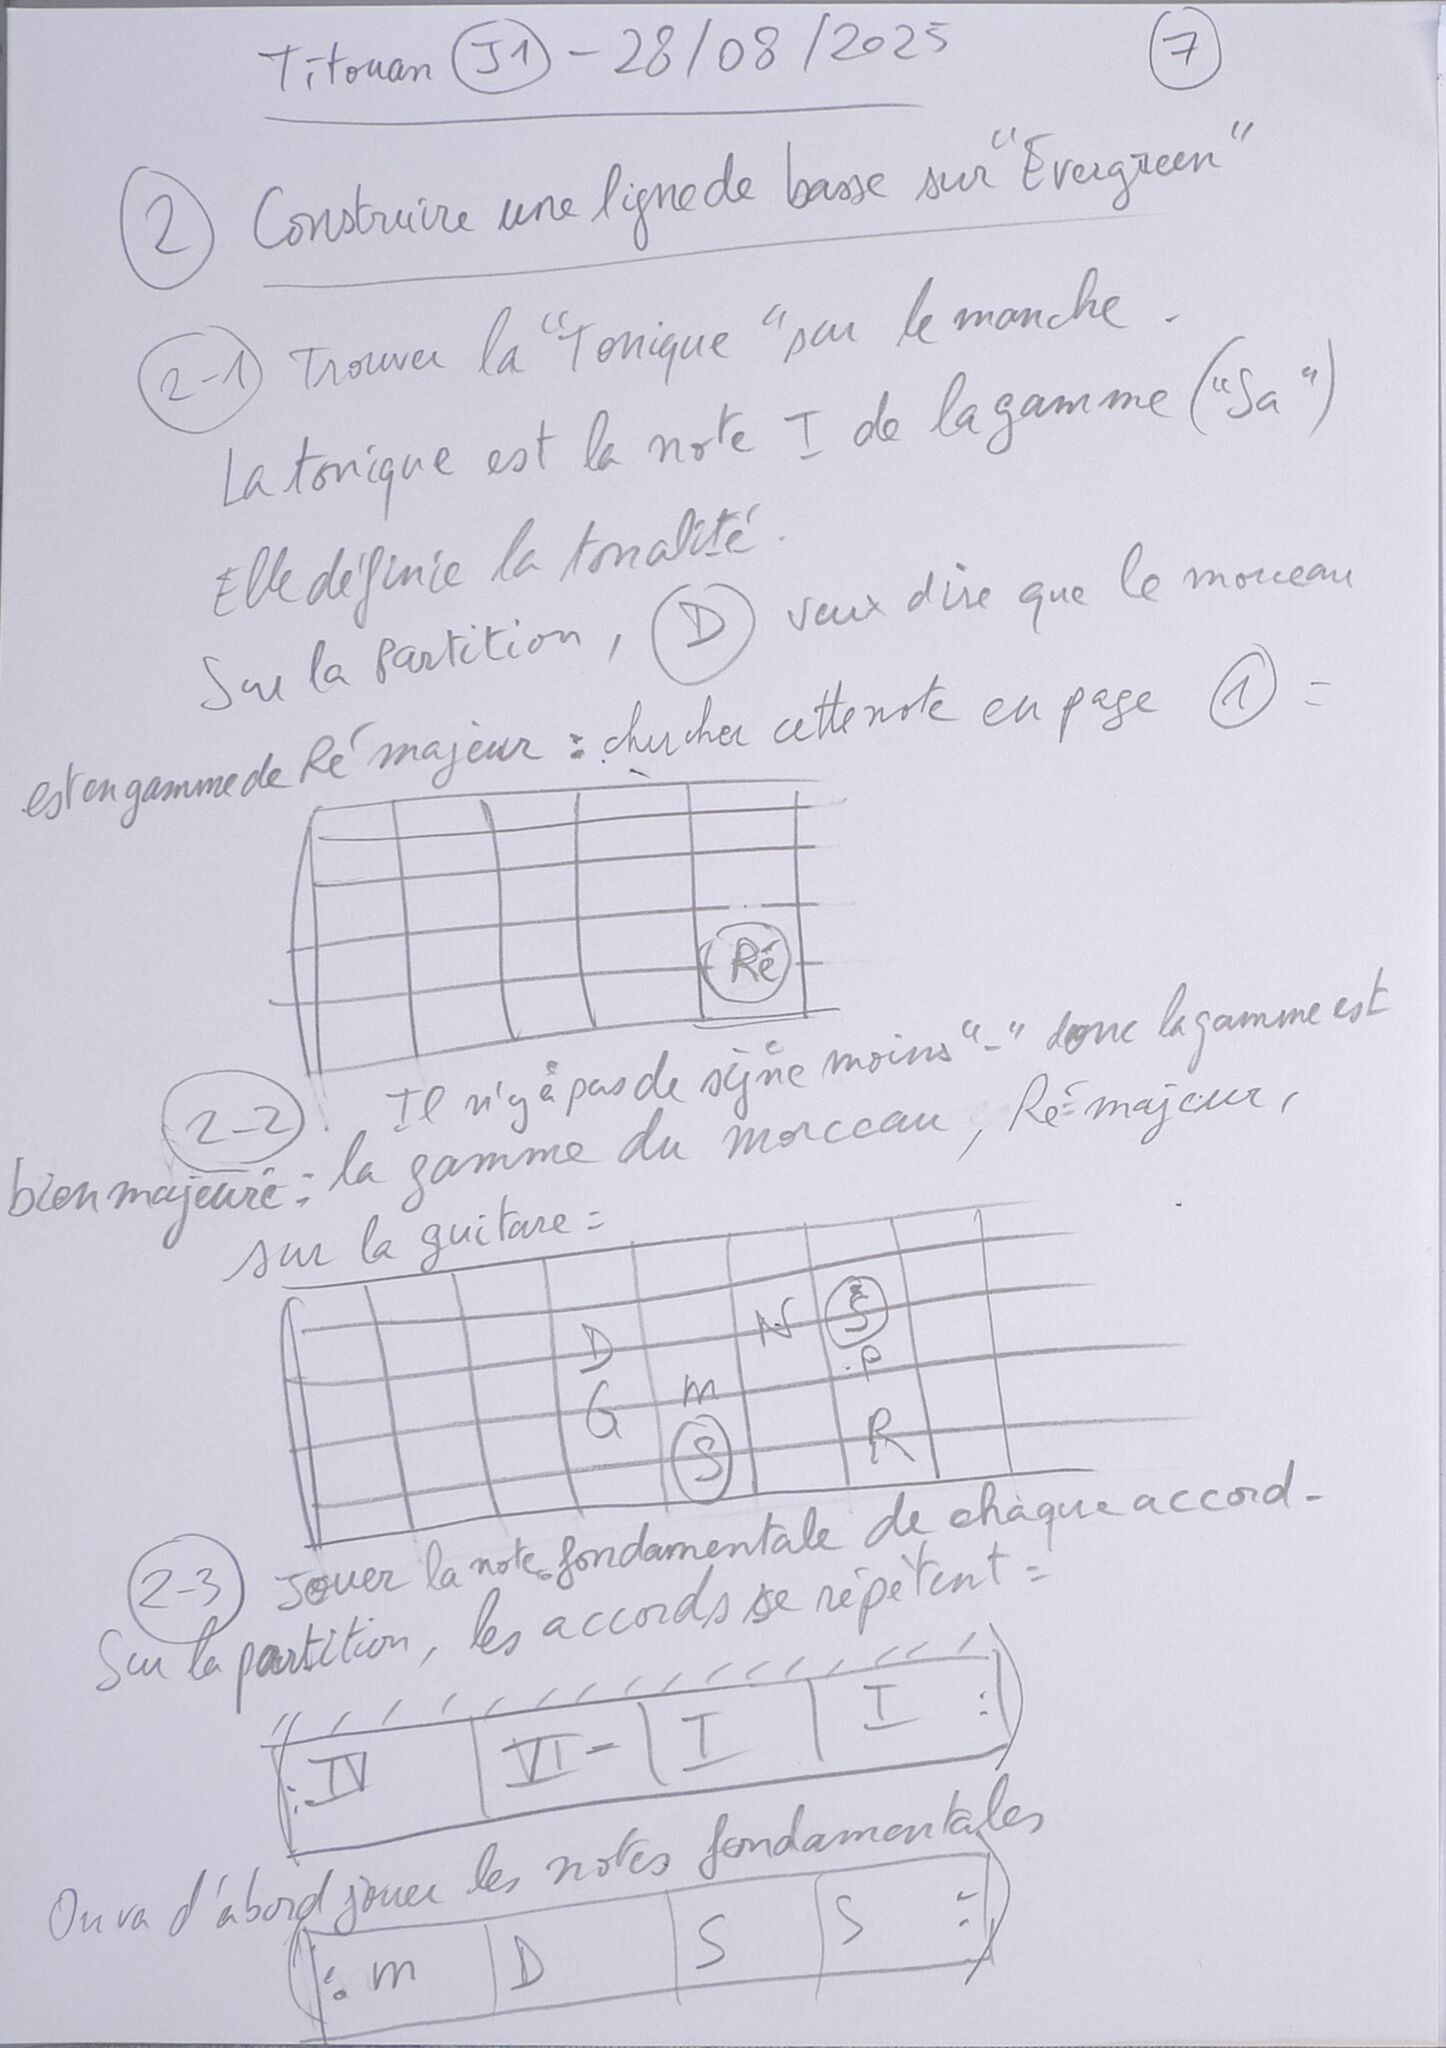 Titouan J1 - 28/08/2025 7
2 Construire une ligne de basse sur "Evergreen"
2-1 Trouver la "Tonique" sur le manche.
La tonique est la note I de la gamme ("Sa")
Elle définie la tonalité.
Sur la partition, D veux dire que le morceau
est en gamme de Ré majeur : chercher cette note en page 1 =
Ré
2-2 Il n'y a pas de signe moins "-" donc la gamme est
bien majeure : la gamme du morceau, Ré majeur,
sur la guitare =
D N S
G m P
S R
2-3 Jouer la note fondamentale de chaque accord.
Sur la partition, les accords se répètent =
IV VI- I I
On va d'abord jouer les notes fondamentales
m D S S